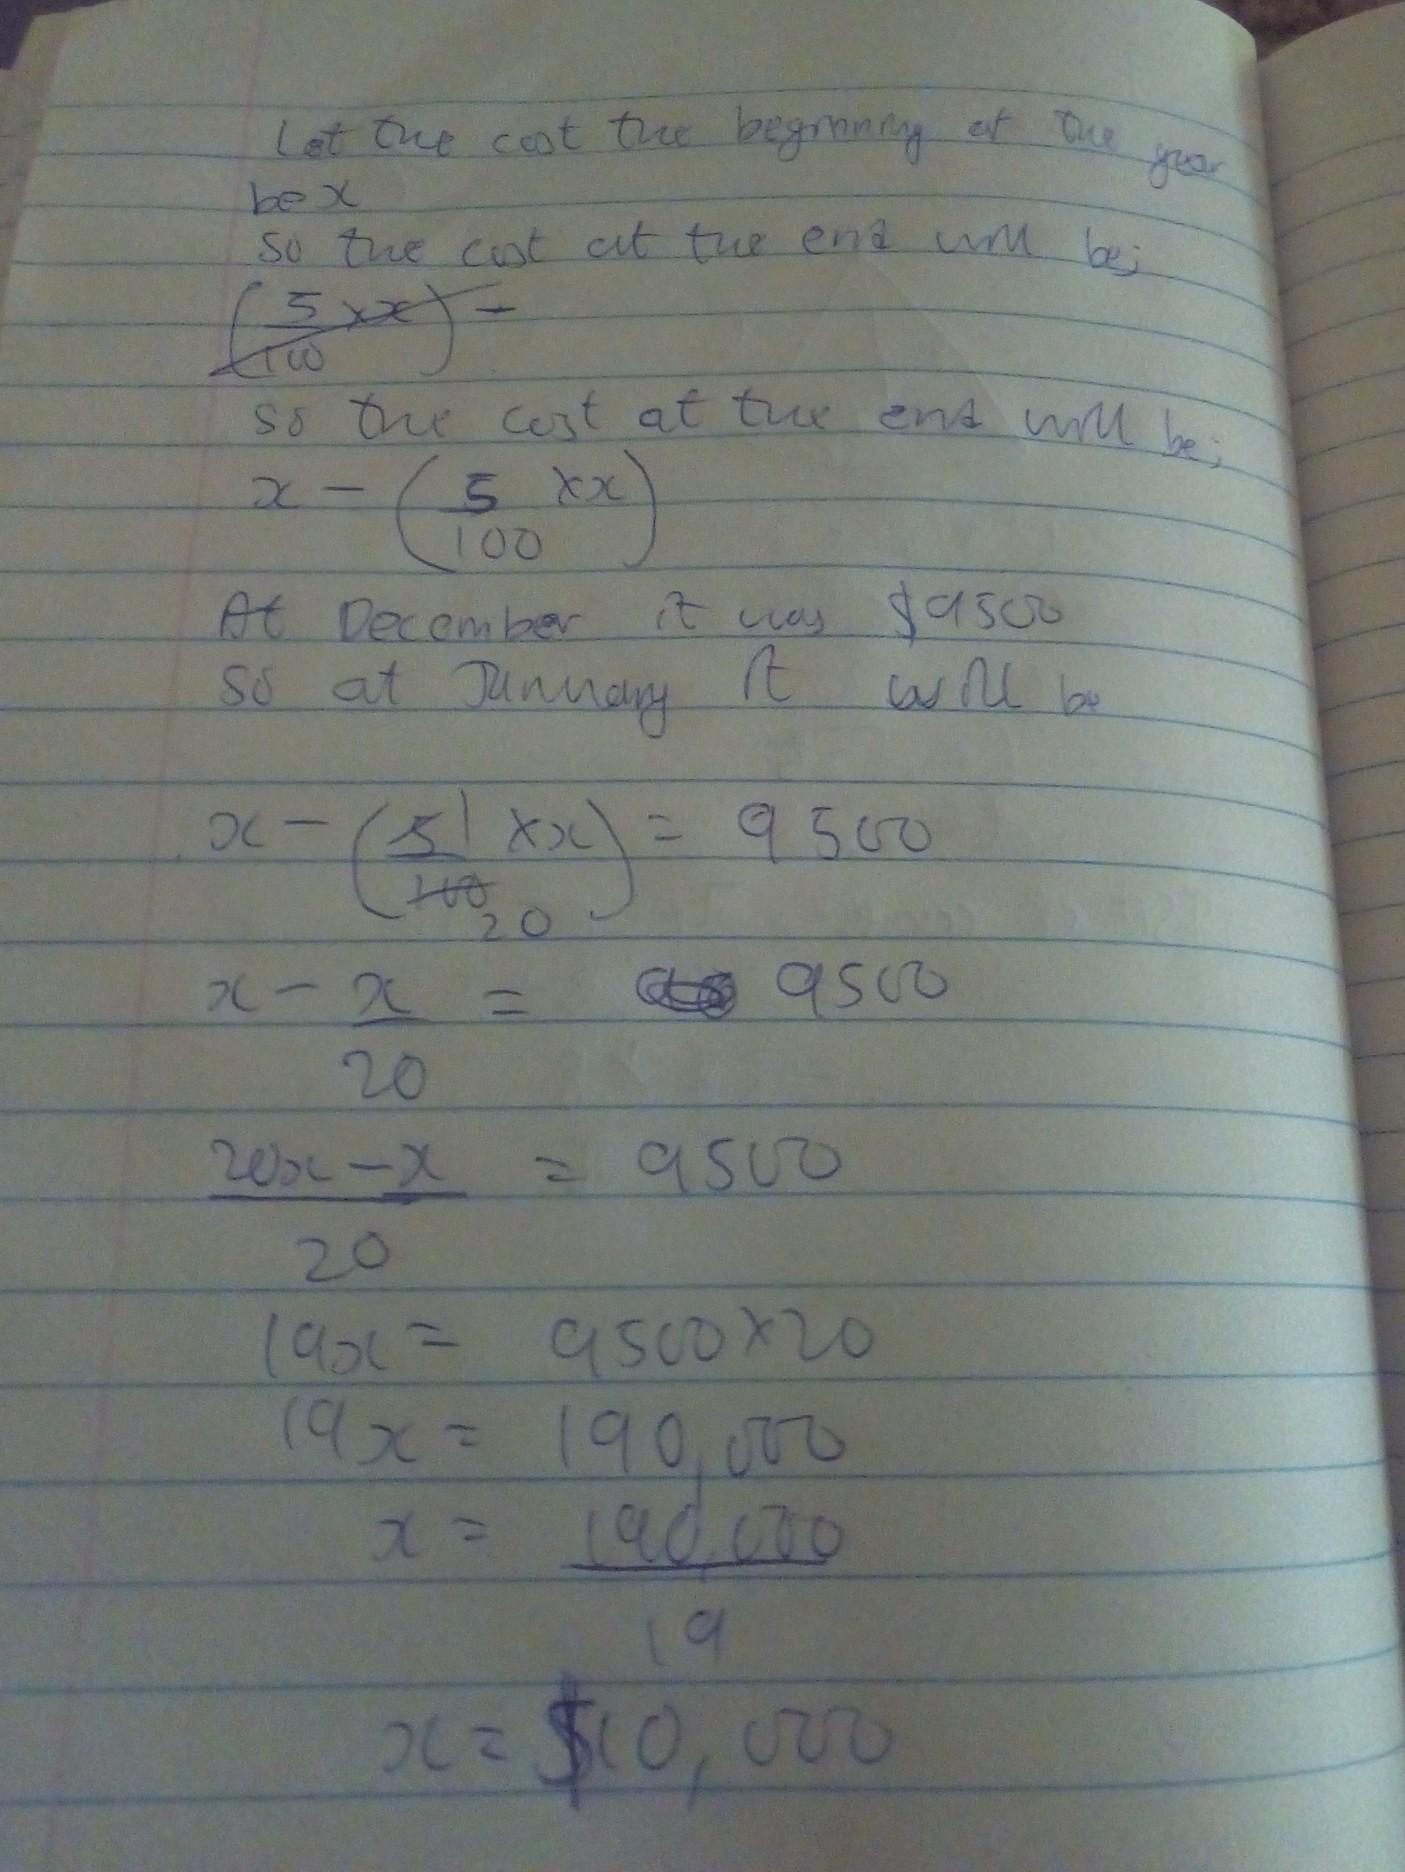 Let the cost the beginning of the year
be x
so the cost at the end will be;
(5/100 × x) -
so the cost at the end will be;
x - (5/100 × x)
At December it was $9500
so at January it will be
x - (5/100 1/20 × x) = 9500
x - x/20 = 9500
20x - x/20 = 9500
19x = 9500 × 20
19x = 190,000
x = 190,000/19
x = $10,000